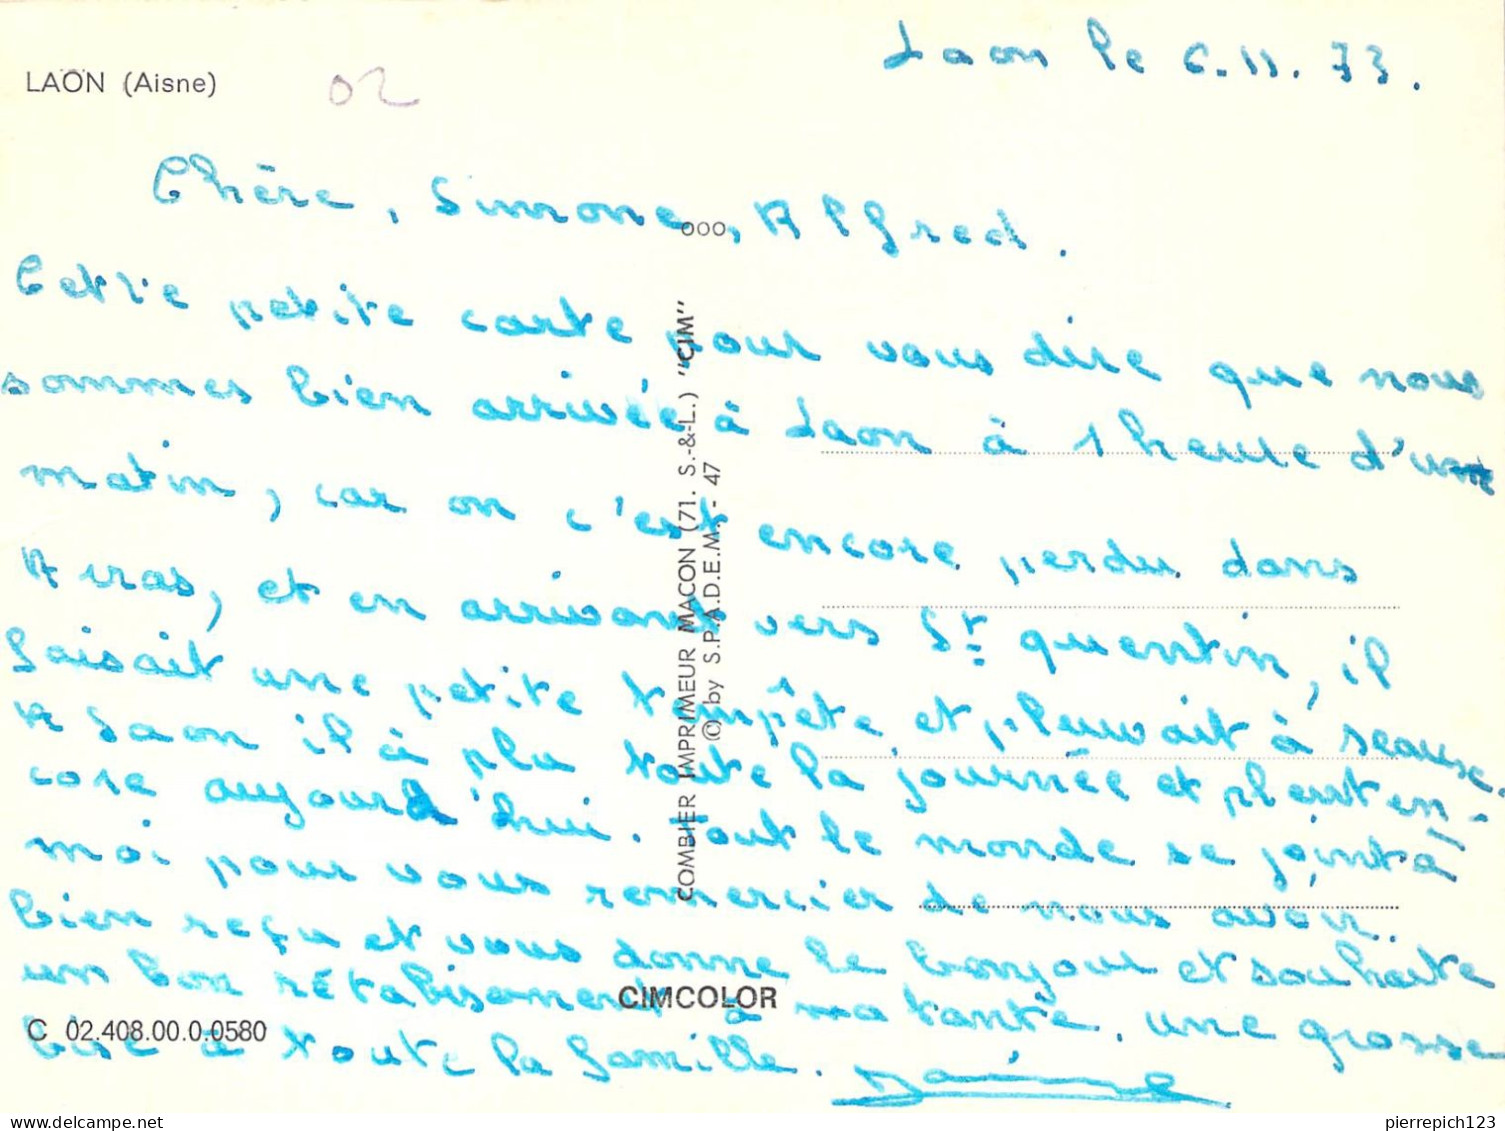 Laon le 6.11.73.
LAON (Aisne)
02
Chère, Simone, Alfred.
Cette petite carte pour vous dire que nous
sommes bien arrivée à Laon à 1 heure d'une
matin, car on c'est encore perdu dans
Arras, et en arrivant vers St quentin, il
faisait une petite tempête et pleuvait à seaux.
A Laon il à plu toute la journée et pleut en-
core aujourd'hui. Tout le monde se joint à
moi pour vous remercier de nous avoir
bien reçu et vous donne le bonjour et souhaite
un bon rétabisement à ma tante, une grosse
bise à toute la famille.
COMBIER IMPRIMEUR MACON (71. S.-&-L.) "CIM"
© by S.P.A.D.E.M. - 47
CIMCOLOR
C 02.408.00.0.0580
pierrepich123